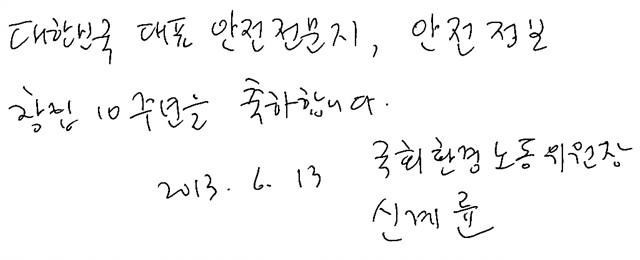 대한민국 대표 안전전문지, 안전정보
창립 10주년을 축하합니다.
2013. 6. 13 국회환경노동위원장
신계륜